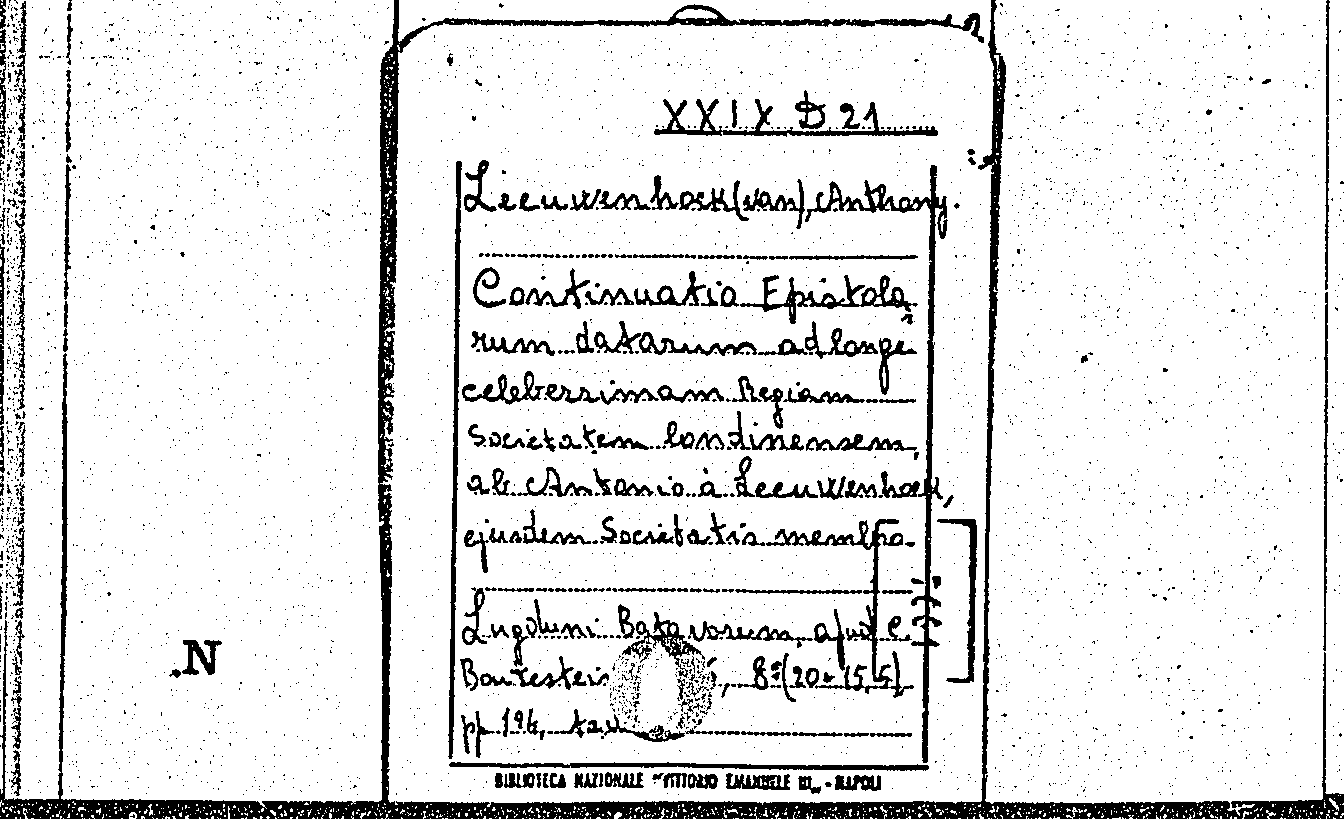 XXIX D 21
Leeuwenhoek (van), Anthony.
Continuatio Epistola
rum datarum ad longe
celeberrimam Regiam
Societatem londinensem,
ab Antonio à Leeuwenhoek,
ejusdem Societatis membro.
Lugduni Batavorum, apud C.
8º (20 × 15,5)
pp 194, tav
.N
BIBLIOTECA NAZIONALE "VITTORIO EMANUELE III„ - NAPOLI